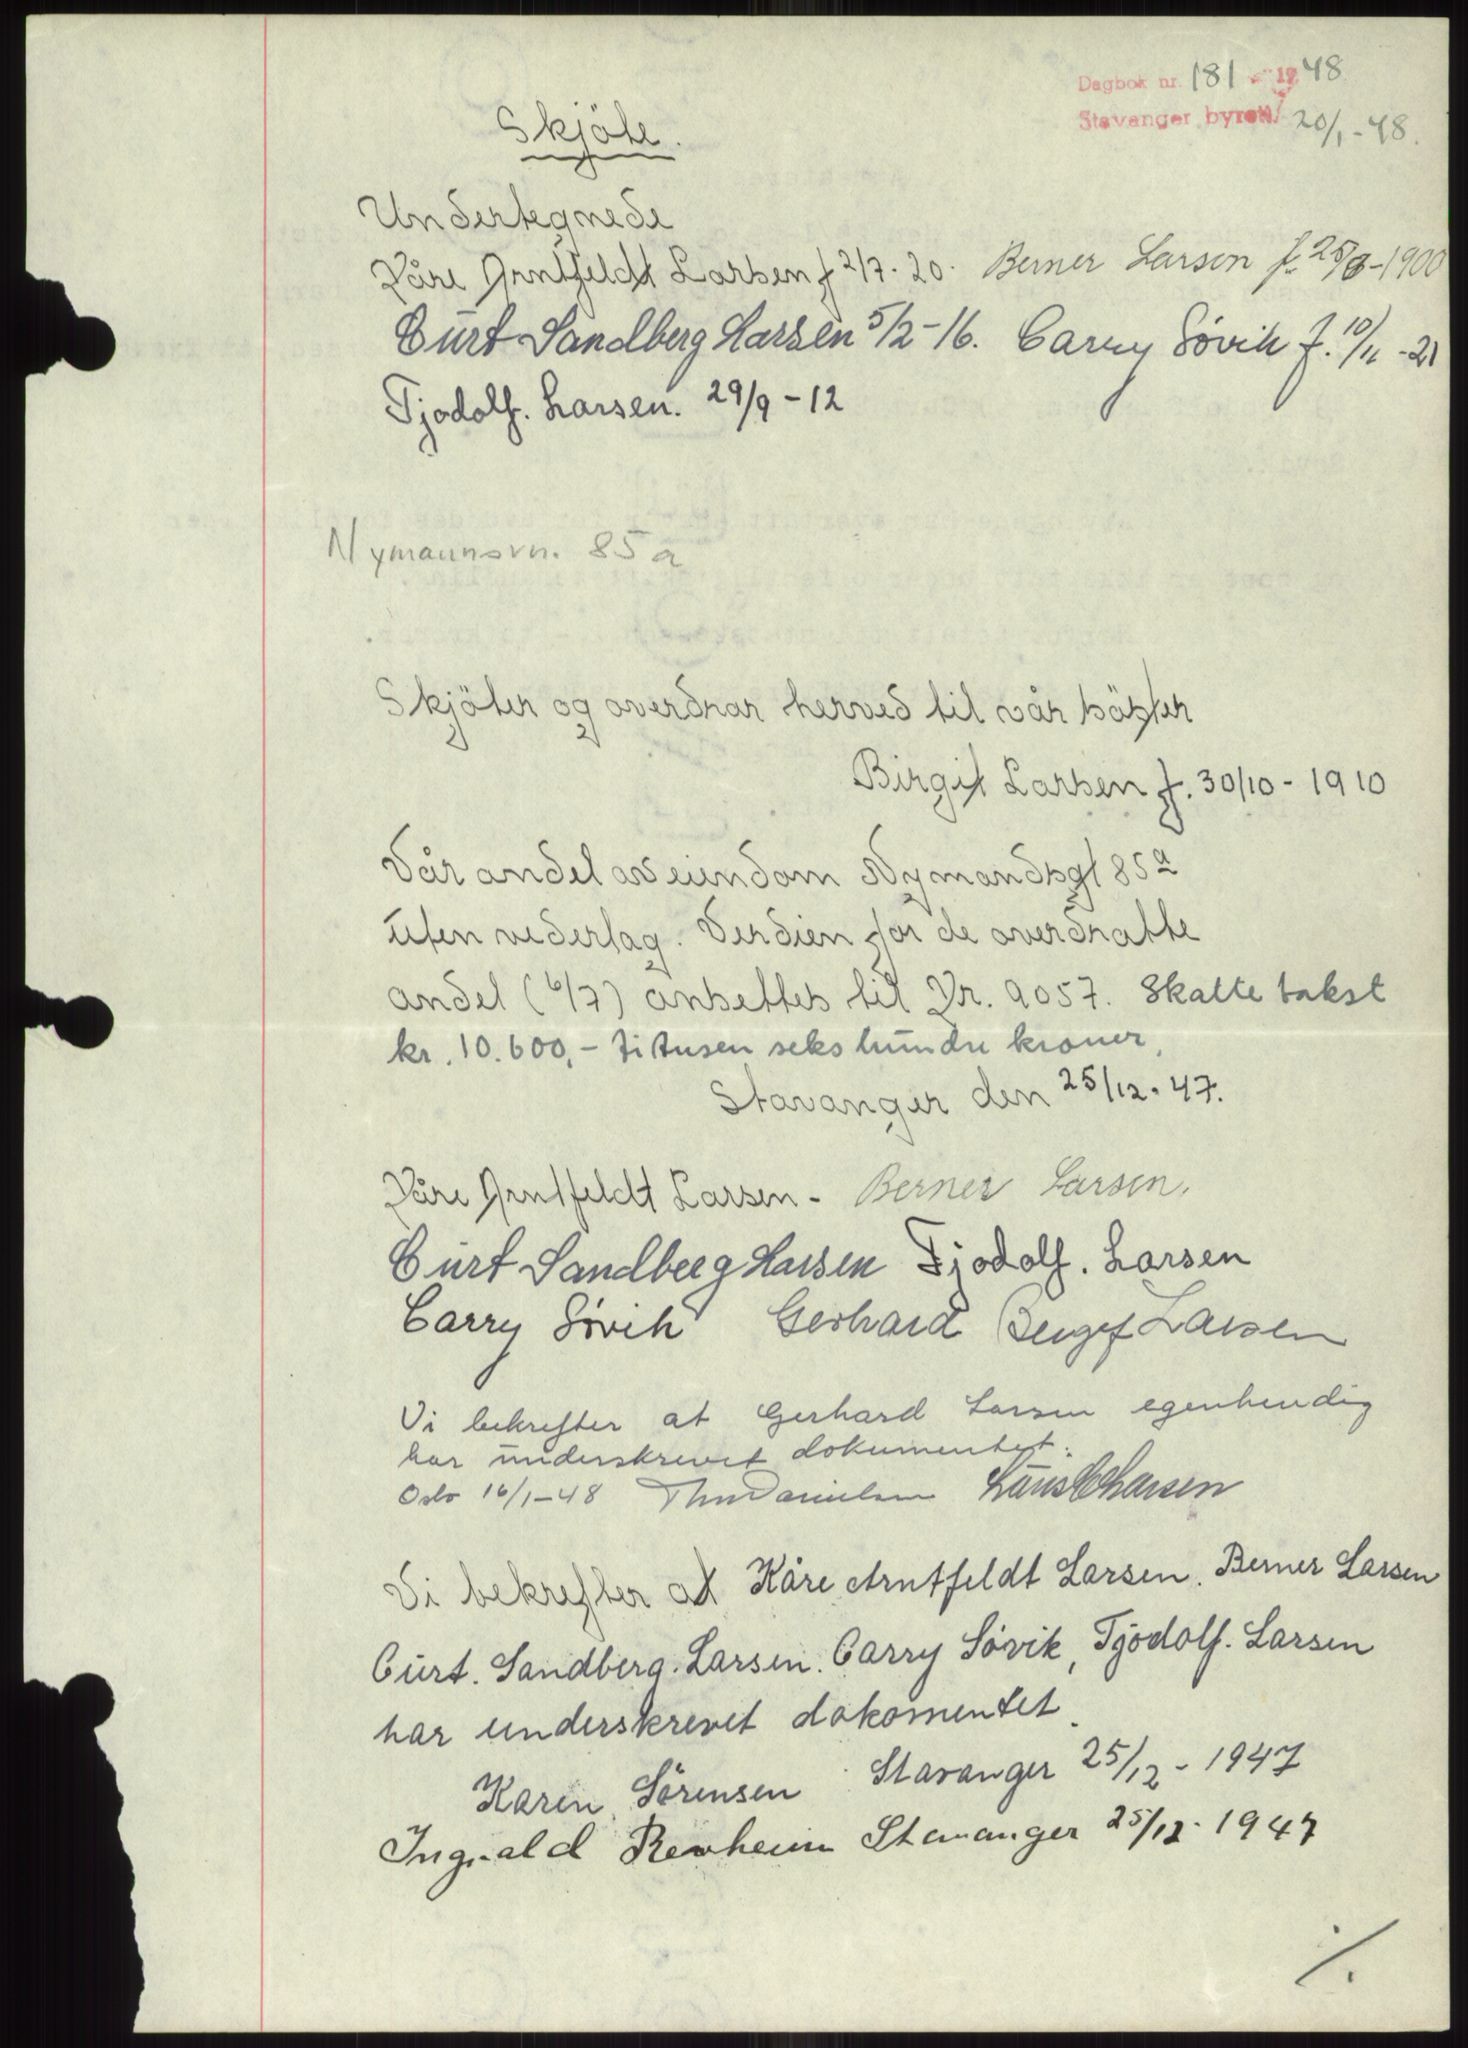 Dagbok nr. 181 - 1948
Stavanger byrett 20/1-48.
Skjöte.
Undertegnede
Kåre Arntfeldt Larsen f 2/7. 20. Berner Larsen f. 25/8-1900
Curt Sandberg Larsen 5/2-16. Carry Søvik f. 10/11 -21
Tjodolf. Larsen. 29/9-12
Nymannsvn. 85 a
Skjöter og overdrar herved til vår söster
Birgit Larsen f. 30/10-1910
Vår andel av eiendom Nymandsgt 85 a
uten vederlag. Verdien for de overdratte
andel (6/7) ansettes til Kr. 9057. Skatte takst
kr. 10.600,- ti tusen seks hundre kroner,
Stavanger den 25/12. 47.
Kåre Arntfeldt Larsen - Berner Larsen.
Curt Sandberg Larsen Tjodolf. Larsen
Carry Søvik Gerhard Larsen
Vi bekrefter at Gerhard Larsen egenhendig
har underskrevet dokumentet.
Oslo 16/1-48 Danielsen Larsen
Vi bekrefter at Kåre Arntfeldt Larsen. Berner Larsen
Curt. Sandberg. Larsen. Carry Søvik, Tjodolf. Larsen
har underskrevet dokomentet.
Karen Sörensen Stavanger 25/12-1947
Ingvald Revheim Stavanger 25/12-1947
./.